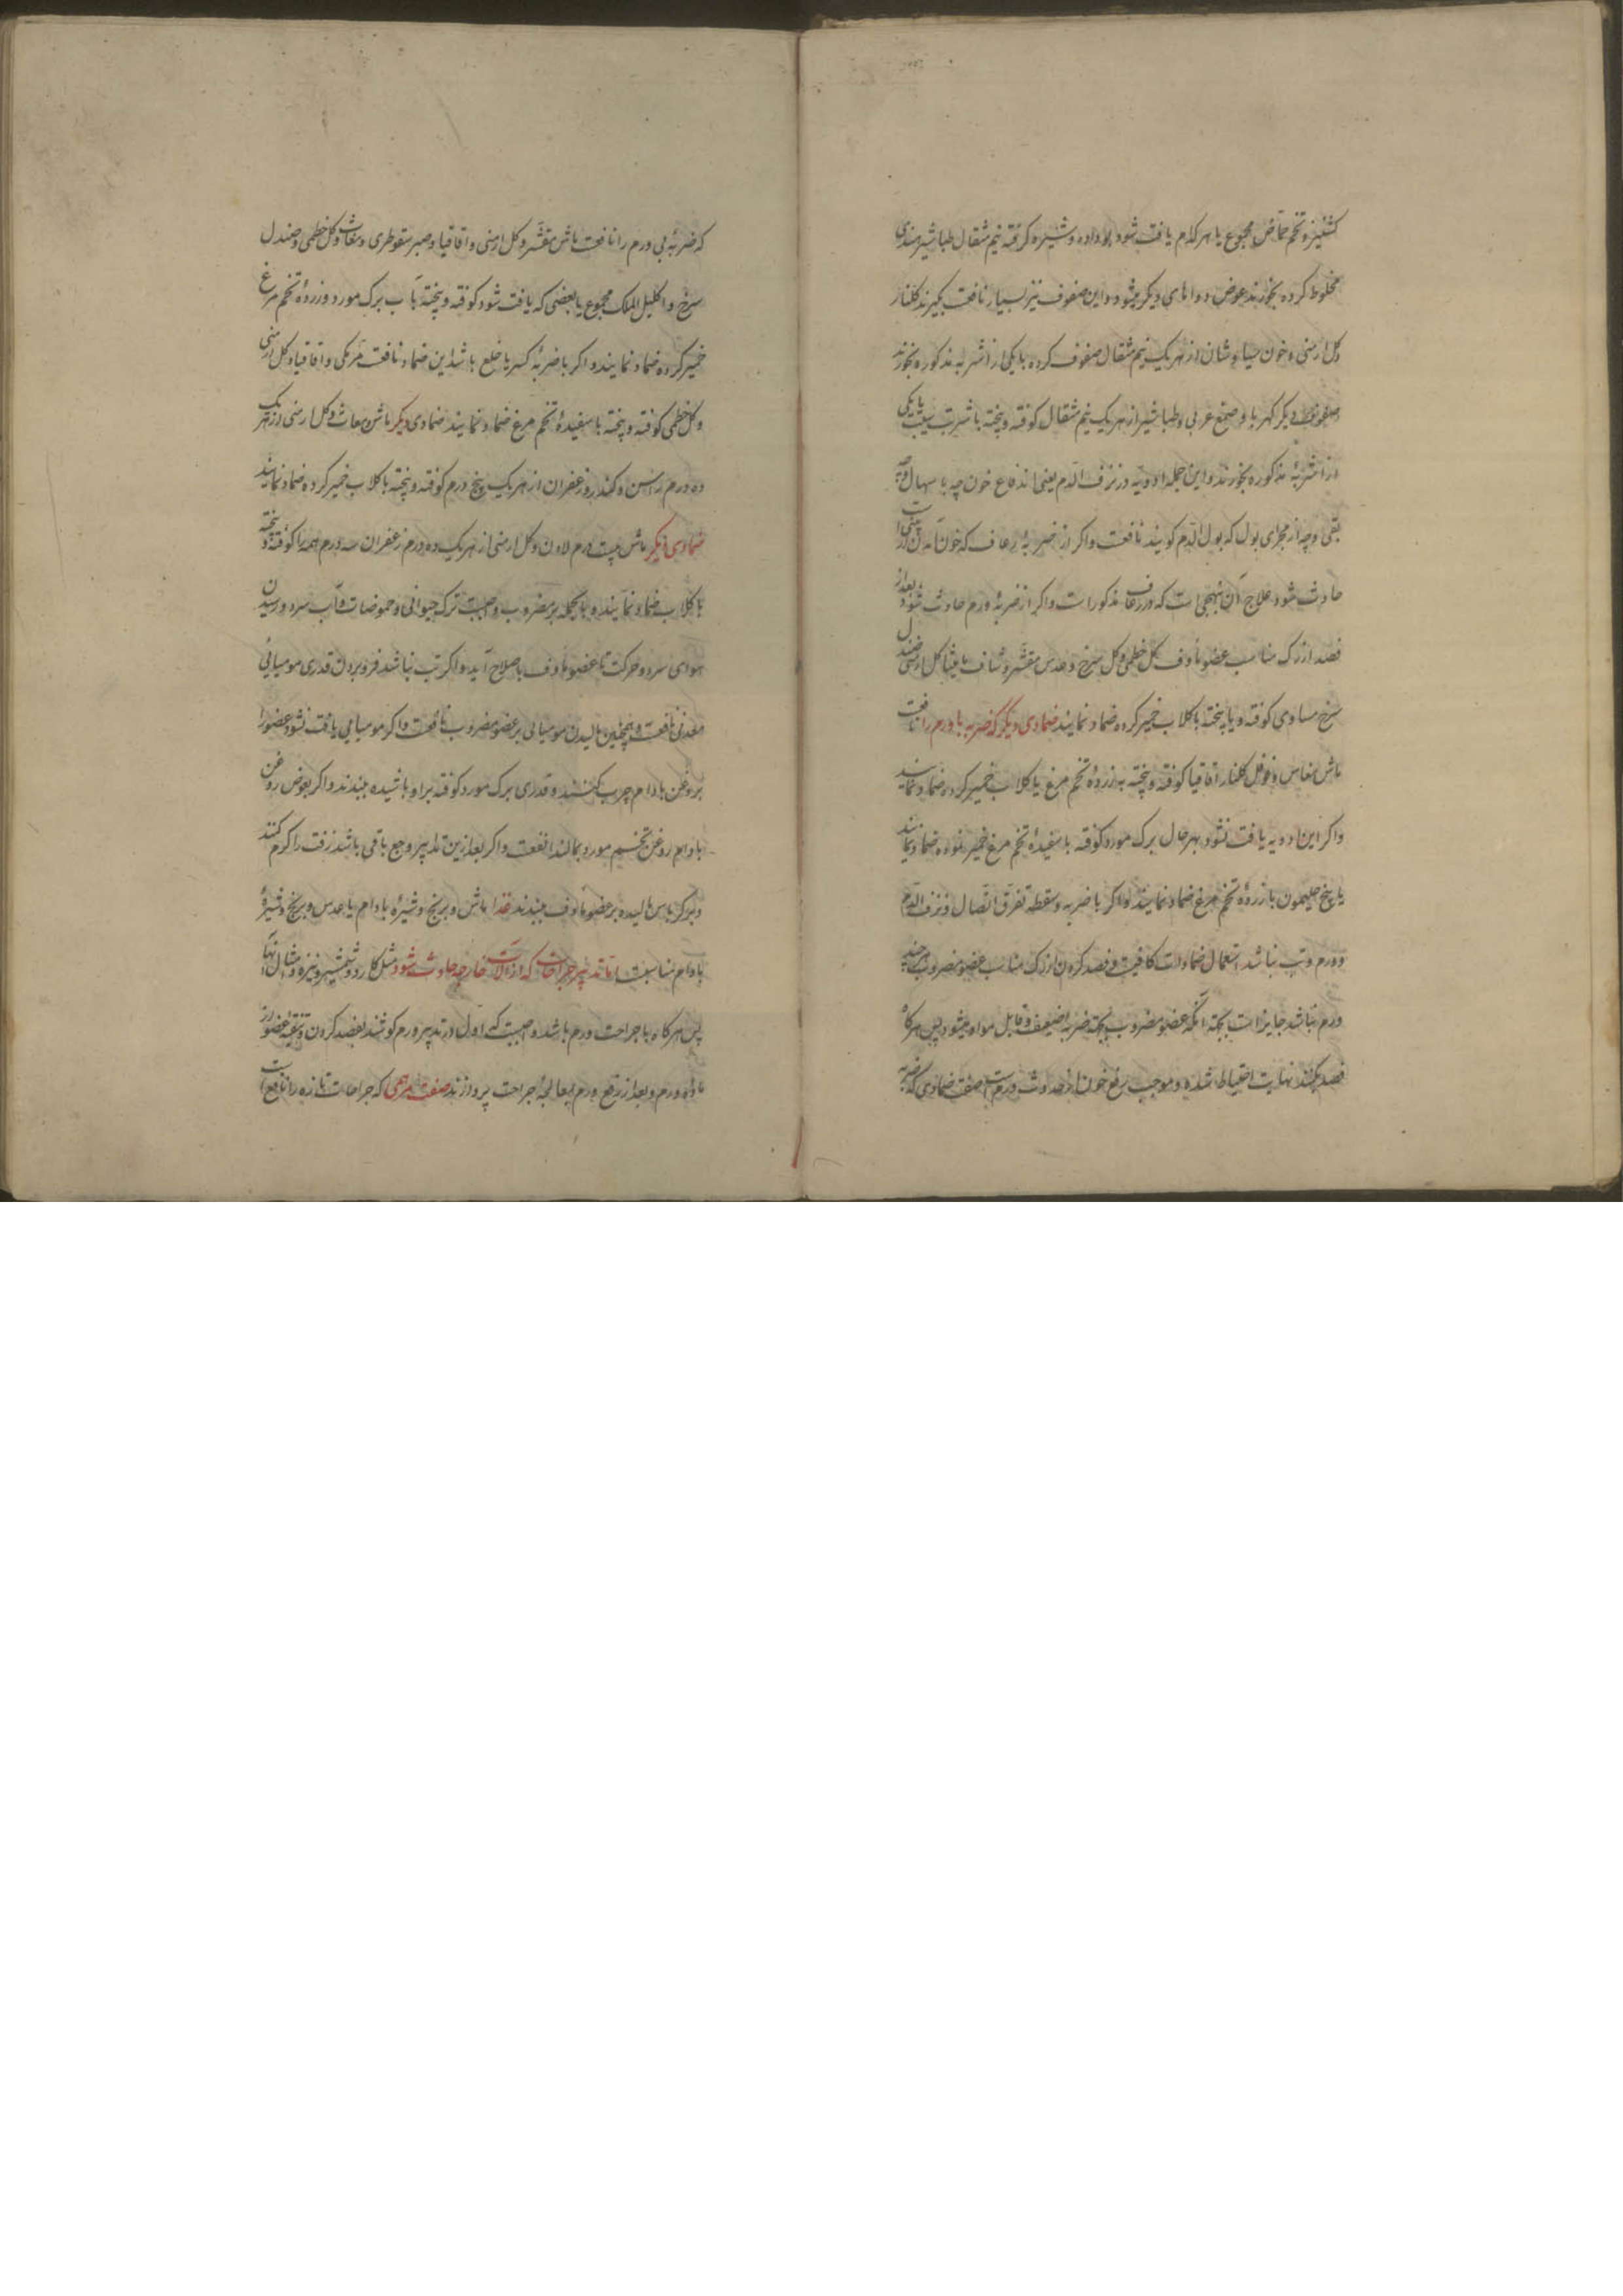 کشنیز و تخم حماض مجموع یا هر کدام یافت شود بو داده و شیره گرفته نیم مثقال طباشیر هندی
مخلوط کرده بخورند عوض دواهای دیگر میشود و این صفوف نیز بسیار نافعست بگیرند گلنار
و گل ارمنی و خون سیاوشان از هر یک نیم مثقال صفوف کرده با یکی از اشربه مذکوره بخورند
صفوف دیگر کهربا و صمغ عربی و طباشیر از هر یک نیم مثقال کوفته و پخته با شربت سیب یا یکی
از اشربهٔ مذکوره بخورند و این جمله ادویه در نزف الدم یعنی اندفاع خون چه با سهال و چه
بقی و چه از مجرای بول که بول الدم گویند نافعست و اگر از ضربه رعاف که خون آمدن از بینی است
حادث شود علاج آن بنهجی است که در رعاف مذکور است و اگر از ضربهٔ ورم حادث شود بعد از
فصد از رگ مناسب عضو ماوف گل خطمی و گل سرخ و عدس مقشر و شیاف مامیثا گل ارمنی صندل
سرخ مساوی کوفته و پخته با گلاب خمیر کرده ضماد نمایند ضمادی دیگر که ضربه با ورم را نافعست
ماش مغاس و فوفل گلنار اقاقیا کوفته و پخته به زردهٔ تخم مرغ یا گلاب خمیر کرده ضماد نمایند
و اگر این ادویه یافت نشود بهر حال برگ مورد کوفته با سفیدهٔ تخم مرغ خمیر نموده ضماد نمایند
یا با زردهٔ تخم مرغ ضماد نمایند و اگر با ضربه و سقطه تفرق اتصال و نزف الدم
و ورم و تب نباشد استعمال ضمادات کافیست و فصد کردن از رگ مناسب عضو مضروب هر چند
ورم نباشد جایز است بجهة آنکه عضو مضروب بجهة ضربه ضعیف و قابل مواد میشود پس هر گاه
فصد بکنند نهایت احتیاط شده و موجب رفع خون از حدوث ورم است صفت ضمادی که ضربه
که ضربهٔ بی ورم را نافعست ماش مقشر و گل ارمنی و اقاقیا و صبر سقوطری و مغاث و گل خطمی و صندل
سرخ و اکلیل الملک مجموع یا بعضی که یافت شود کوفته و پخته بآب برگ مورد و زردهٔ تخم مرغ
خمیر کرده ضماد نمایند و اگر با ضربهٔ کسر یا خلع باشد این ضماد نافعست مر مکی و اقاقیا و گل ارمنی
و گل خطمی کوفته و پخته با سفیدهٔ تخم مرغ ضماد نمایند ضمادی دیگر ماش و مغاث و گل ارمنی از هر یک
ده درم راسن و کندر و زعفران از هر یک پنج درم کوفته و پخته با گلاب خمیر کرده ضماد نمایند
ضمادی دیگر ماش بیست درم لادن و گل ارمنی از هر یک ده درم زعفران سه درم همه را کوفته و پخته
با گلاب ضماد نمایند و بالجمله بر مضروب واجبست ترک حیوانی و حموضات و آب سرد و رسیدن
هوای سرد و حرکت تا عضو ماوف باصلاح آید و اگر تب نباشد فرو بردن قدری مومیائی
معدنی نافعست و همچنین مالیدن مومیائی بر عضو مضروب نافعست و اگر مومیایی یافت نشود عضو را
بروغن بادام چرب بکنند و قدری برگ مورد کوفته بر او پاشیده ببندند و اگر بعوض روغن
بادام روغن تخم مورد بمالند انفعست و اگر بعد ازین تدابیر وجع باقی باشد زفت را گرم کنند
و بر کرباس مالیده بر عضو ماوف ببندند غذا ماش و برنج و شیرهٔ بادام یا عدس و برنج و شیرهٔ
بادام مناسبست اما تدبیر جراحات که از آلات خارجه حادث شود مثل کارد و شمشیر و نیزه و امثال آنها
پس هر گاه با جراحت ورم باشد واجبست که اول در تدبیر ورم کوشند بفصد کردن و تنقیه عضو از
مادهٔ ورم و بعد از رفع ورم بمعالجهٔ جراحت پردازند صفت مرهمی که جراحات تازه را نافع است